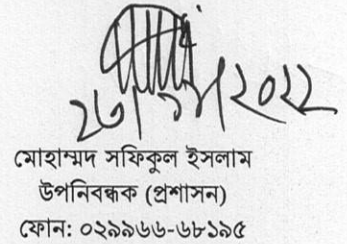 ২৬/০৯/২০২২
মোহাম্মদ সফিকুল ইসলাম
উপনিবন্ধক (প্রশাসন)
ফোন: ০২৯৯৬৬-৬৮১৯৫